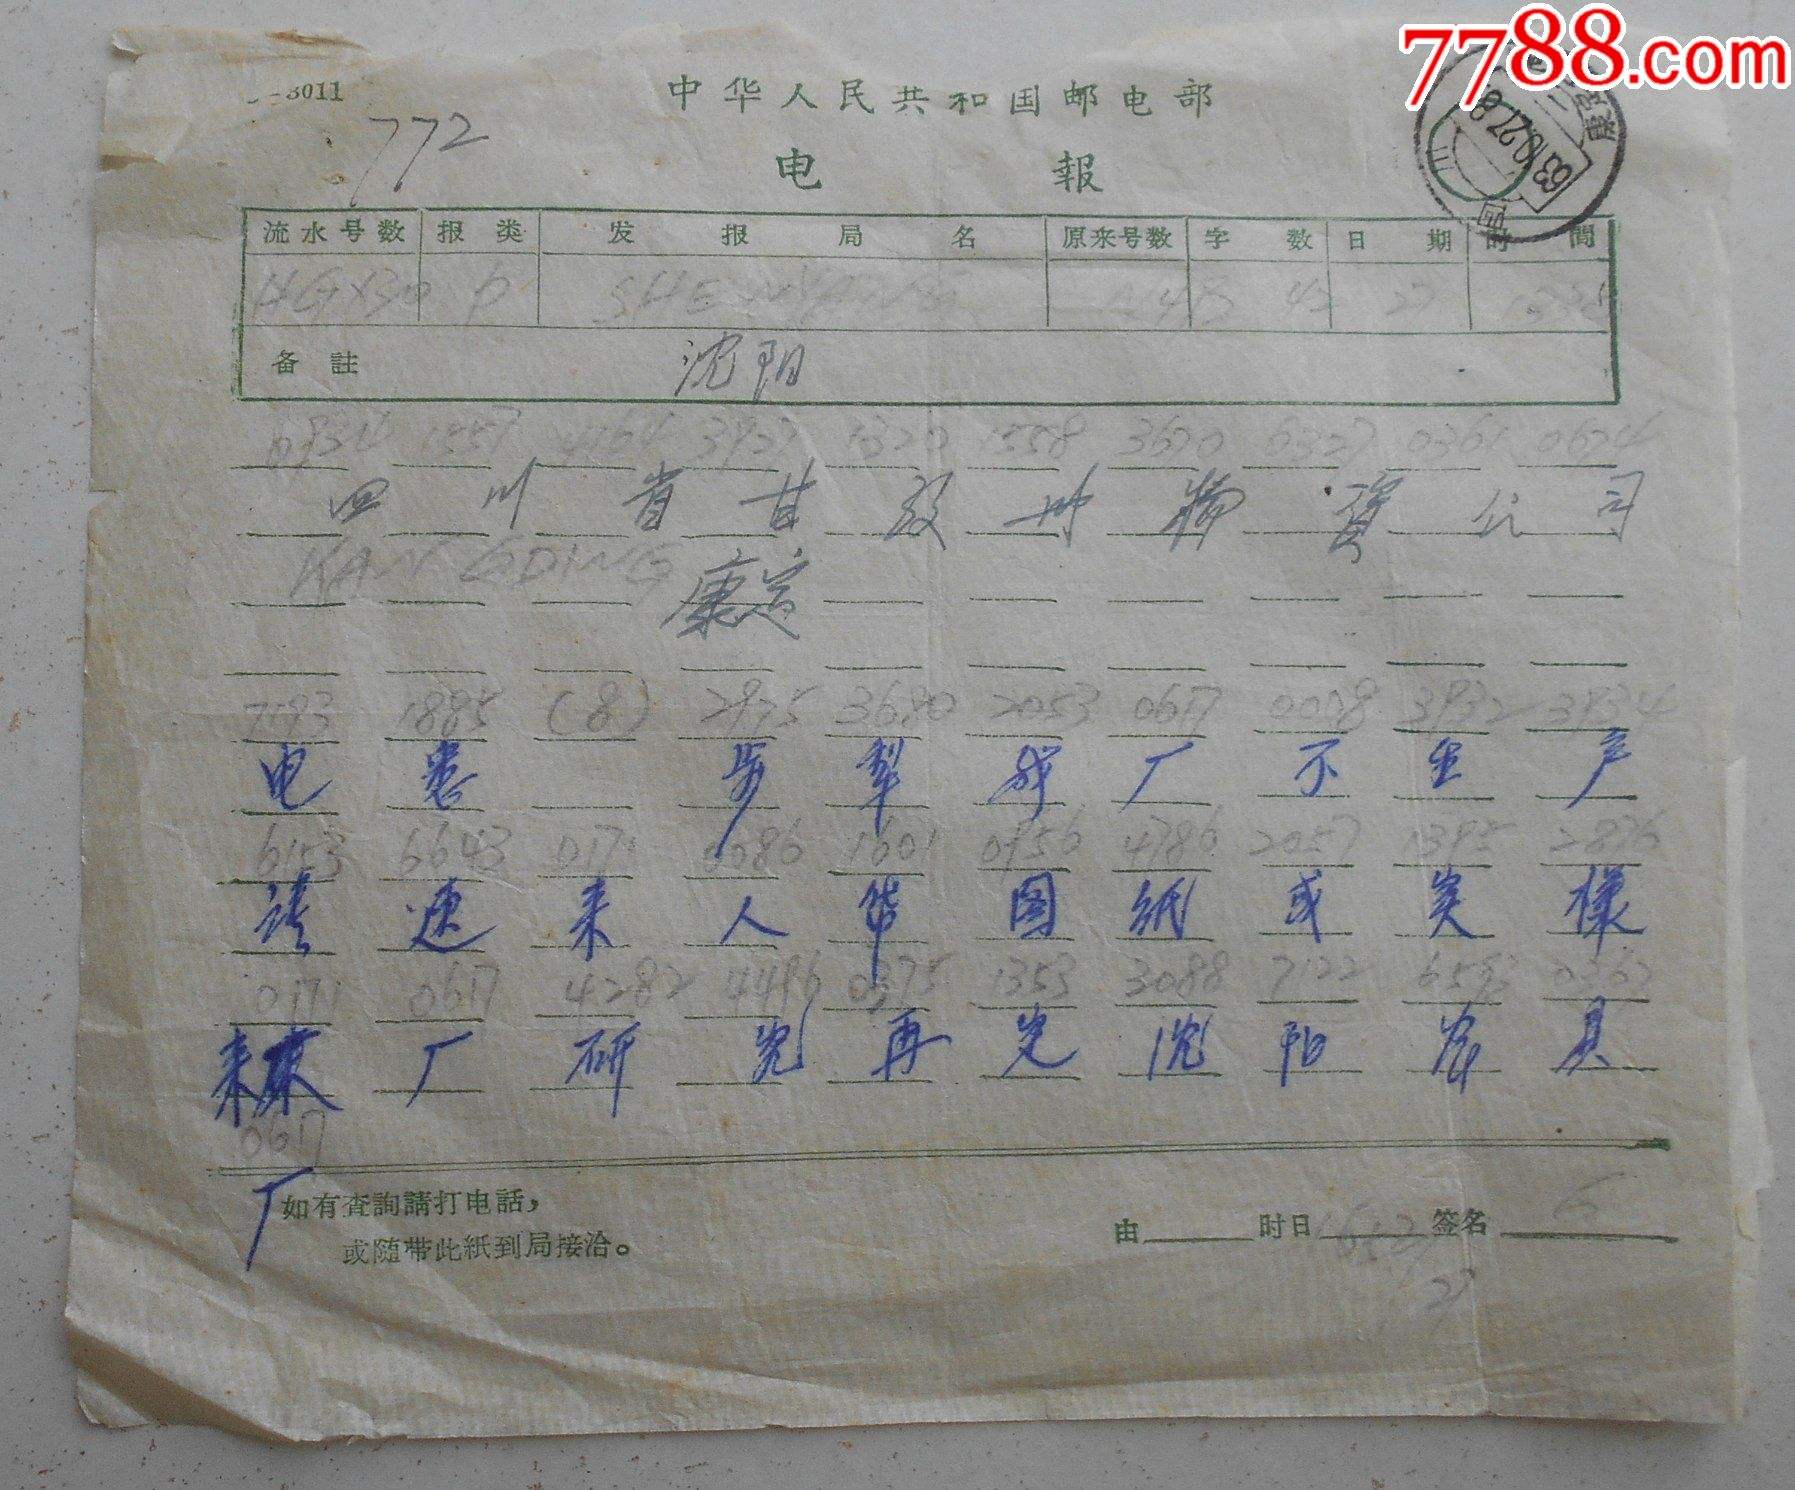 7788.com
3011
中华人民共和国邮电部
772
电報
流水号数 报类 发报局名 原来号数 字数 日期 时間
HGX30 P SHENYANG 42 27
备註 沈阳
1557 4164 3927 1320 1558 3670 6327 0361 0674
四川省甘孜州物資公司
KANGDING 康定
7193 1885 (8) 2975 3680 2053 0617 0008 3932 3934
电悉 步犁我厂不生产
6153 6643 0171 0086 1601 0956 4786 2057 1395 2876
请速来人带图纸或实樣
0171 0617 4282 4496 0375 1353 3088 7122 6593 0367
来厂研究再定沈阳农具
0617
厂
如有查詢請打电話，
或随带此紙到局接洽。
由 时日 签名
27
63.10.27.8
康定